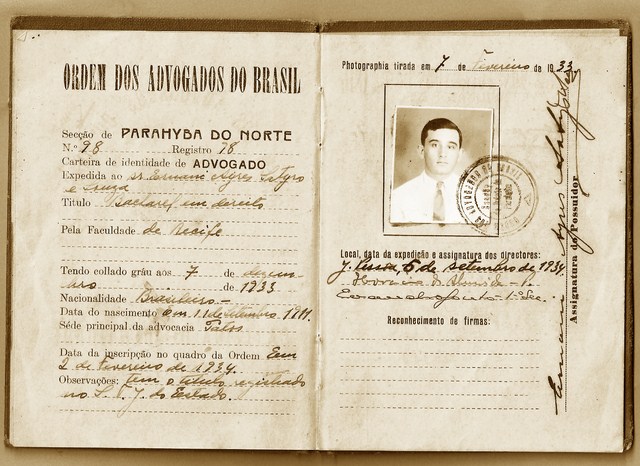 ORDEM DOS ADVOGADOS DO BRASIL
Secção de PARAHYBA DO NORTE
N.º 98 Registro 78
Carteira de identidade de ADVOGADO
Expedida ao sr. Ernani Ayres Satyro
e Souza
Titulo Bacharel em direito
Pela Faculdade de Recife
Tendo collado gráu aos 7 de dezem
bro de 1933
Nacionalidade Brasileiro
Data do nascimento em 11 de setembro 1911.
Séde principal da advocacia Patos
Data da inscripção no quadro da Ordem Em
2 de Fevereiro de 1934.
Observações: Tem o titulo registrado
no S. T. J. do Estado.
Photographia tirada em 7 de Fevereiro de 1933
Local, data da expedição e assignatura dos directores:
J. Pessoa, 6 de setembro de 1934
Reconhecimento de firmas:
Assignatura do Possuidor
Ernani Ayres Satyro e Souza